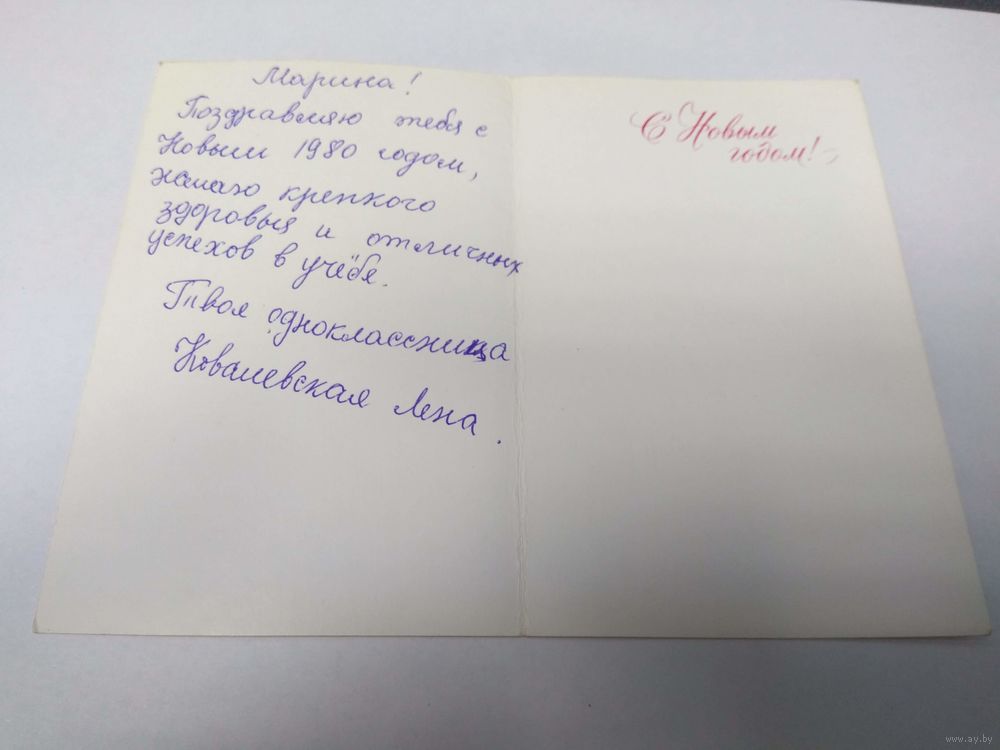 Марина!
Поздравляю тебя с
Новым 1980 годом,
желаю крепкого
здоровья и отличных
успехов в учёбе.
Твоя одноклассница
Ковалевская Лена.
С Новым
годом!
www.ay.by